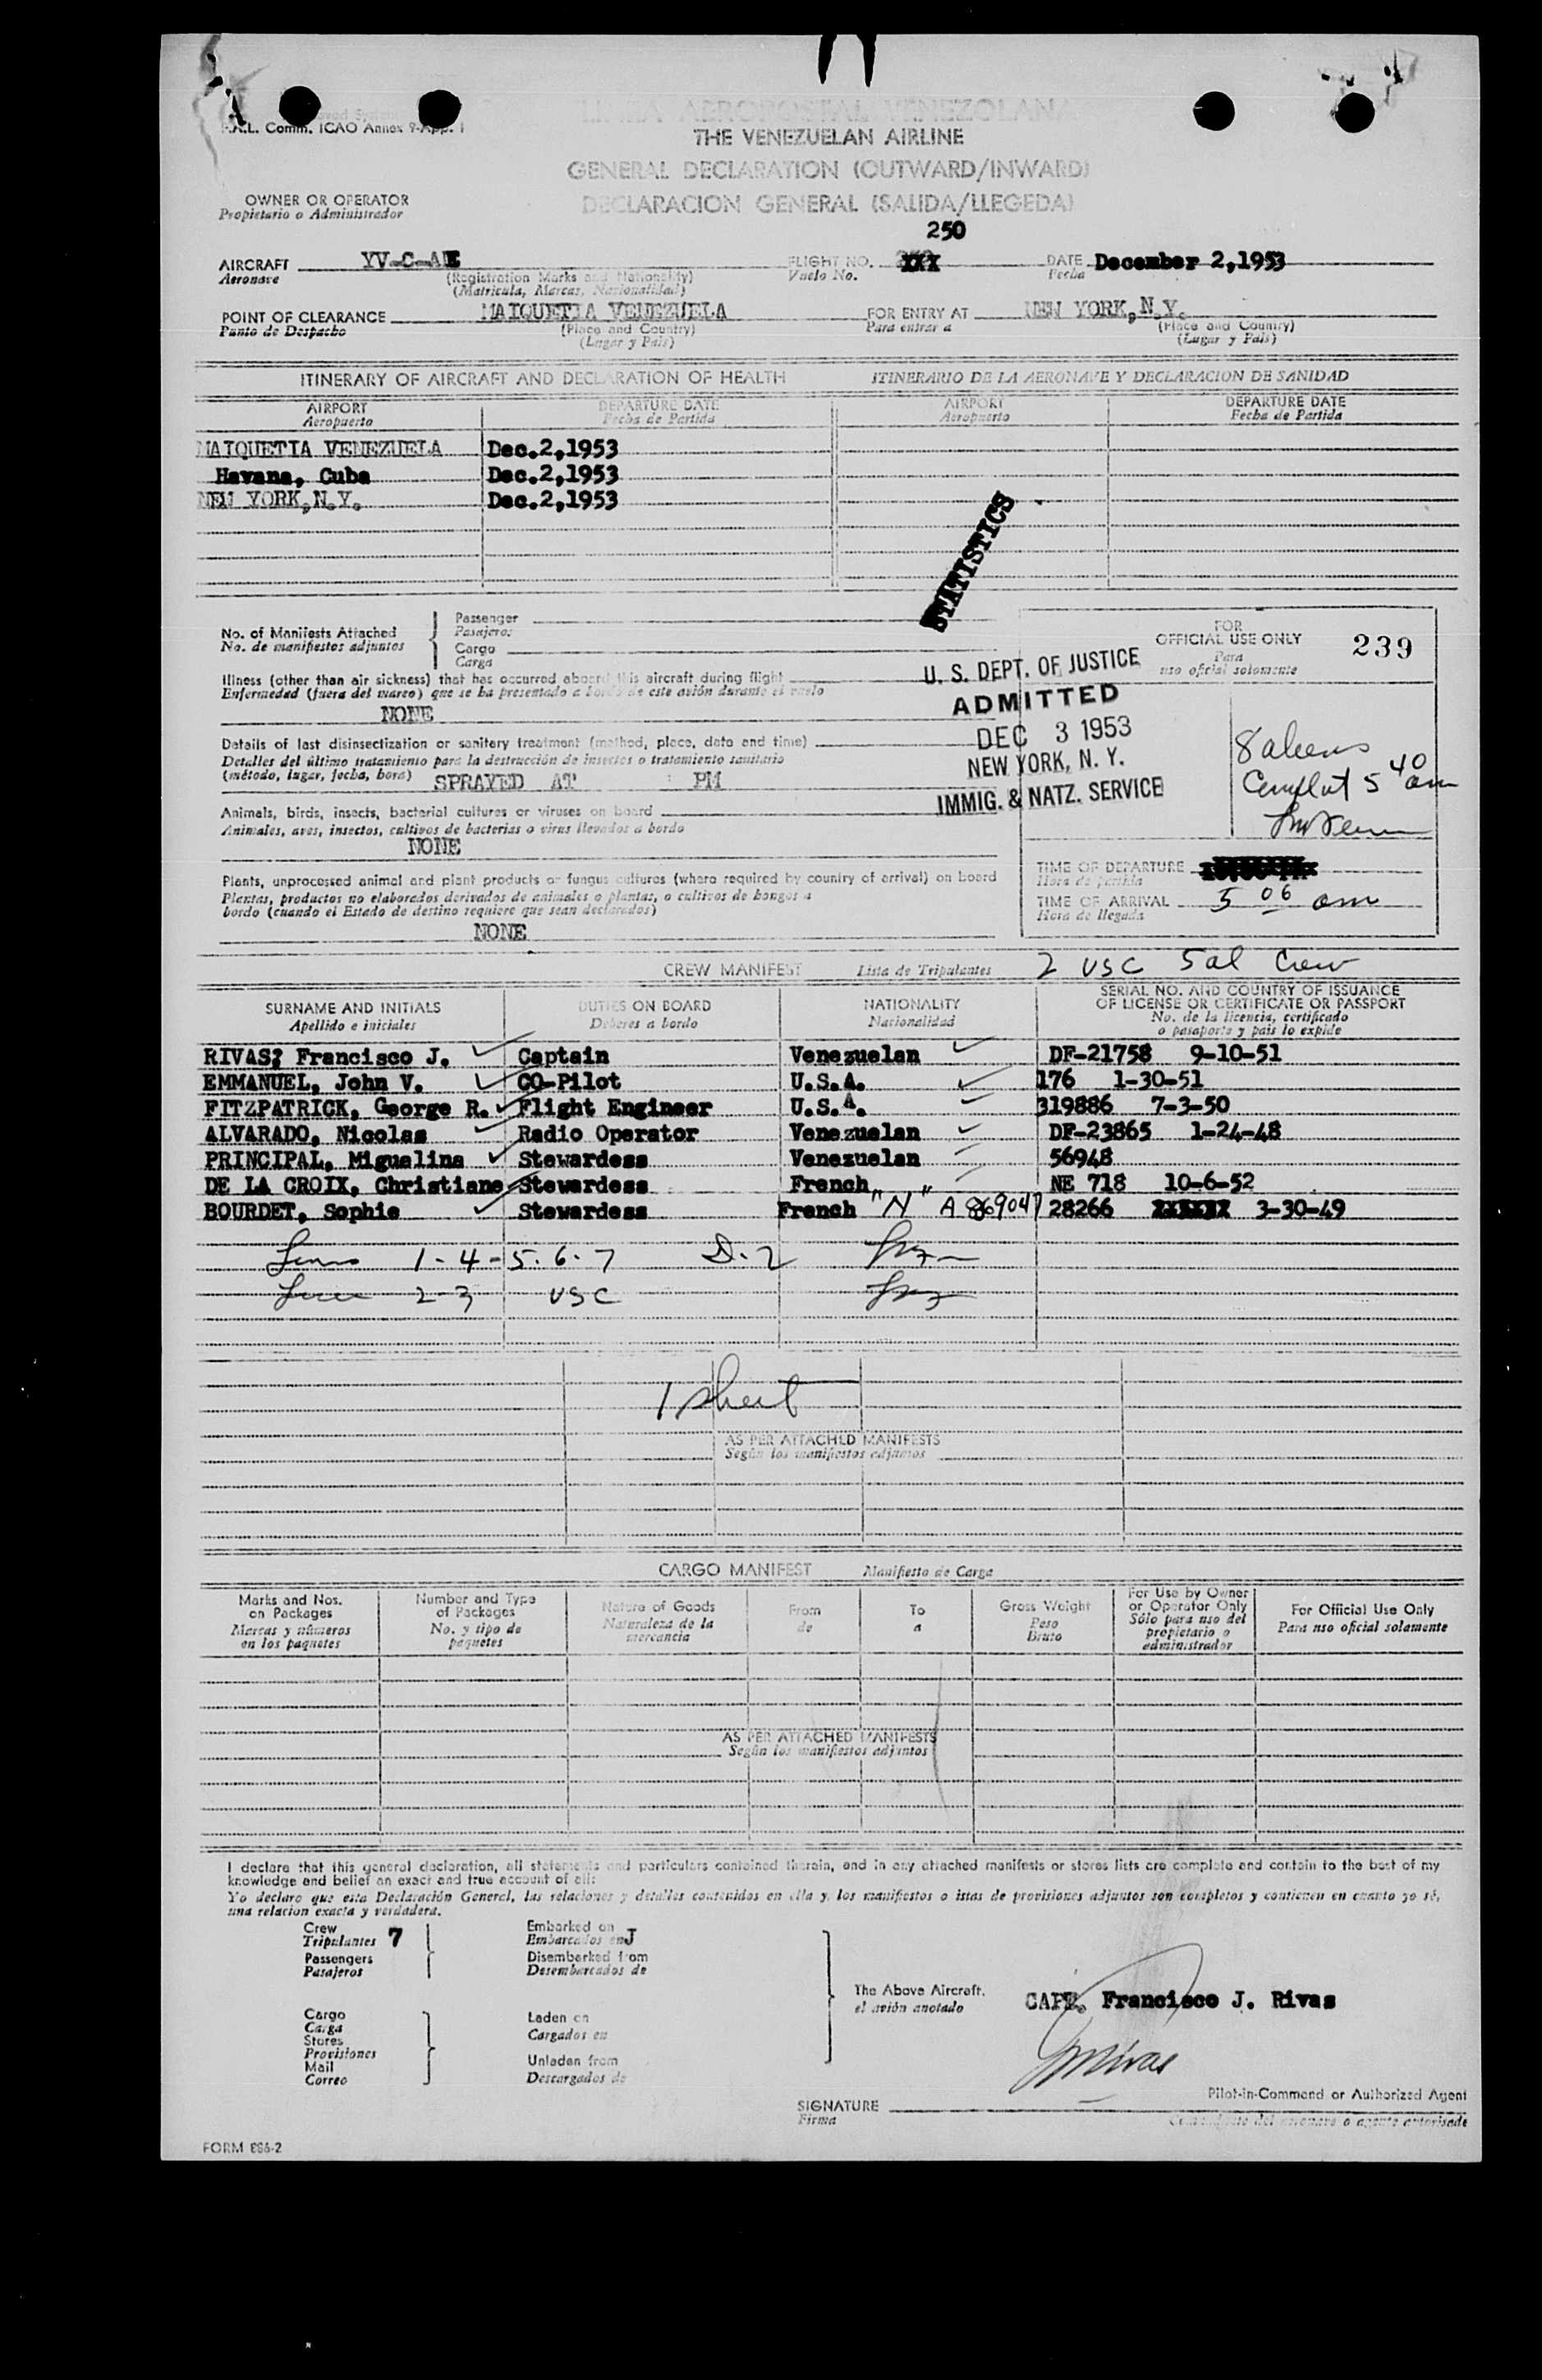 LINEA AEROPOSTAL VENEZOLANA
F.A.L. Comm. ICAO Annex 9-App. 1
THE VENEZUELAN AIRLINE
GENERAL DECLARATION (OUTWARD/INWARD)
OWNER OR OPERATOR
Propietario o Administrador
DECLARACION GENERAL (SALIDA/LLEGEDA)
250
AIRCRAFT YV-C-A FLIGHT NO. XXX DATE December 2,1953
Aeronave (Registration Marks and Nationality) Vuelo No. Fecha
(Matricula, Marcas, Nacionalidad)
POINT OF CLEARANCE MAIQUETIA VENEZUELA FOR ENTRY AT NEW YORK,N.Y.
Punto de Despacho (Place and Country) Para entrar a (Place and Country)
(Lugar y Pais) (Lugar y Pais)
ITINERARY OF AIRCRAFT AND DECLARATION OF HEALTH ITINERARIO DE LA AERONAVE Y DECLARACION DE SANIDAD
AIRPORT DEPARTURE DATE AIRPORT DEPARTURE DATE
Aeropuerto Fecha de Partida Aeropuerto Fecha de Partida
MAIQUETIA VENEZUELA Dec.2,1953
Havana, Cuba Dec.2,1953
NEW YORK,N.Y. Dec.2,1953
STATISTICS
No. of Manifests Attached
No. de manifiestos adjuntos
Passenger
Pasajeros
Cargo
Carga
FOR
OFFICIAL USE ONLY
Para
uso oficial solamente
239
Illness (other than air sickness) that has occurred aboard this aircraft during flight
Enfermedad (fuera del mareo) que se ha presentado a bordo de este avión durante el vuelo
NONE
U. S. DEPT. OF JUSTICE
ADMITTED
DEC 3 1953
NEW YORK, N. Y.
IMMIG. & NATZ. SERVICE
8 aliens
5 40 am
Details of last disinsectization or sanitary treatment (method, place, date and time)
Detalles del último tratamiento para la destrucción de insectos o tratamiento sanitario
(método, lugar, fecha, hora) SPRAYED AT : PM
Animals, birds, insects, bacterial cultures or viruses on board
Animales, aves, insectos, cultivos de bacterias o virus llevados a bordo
NONE
Plants, unprocessed animal and plant products or fungus cultures (where required by country of arrival) on board
Plantas, productos no elaborados derivados de animales o plantas, o cultivos de hongos a
bordo (cuando el Estado de destino requiere que sean declarados)
NONE
TIME OF DEPARTURE
Hora de partida
TIME OF ARRIVAL 5 06 am
Hora de llegada
CREW MANIFEST Lista de Tripulantes 2 USC 5 al Crew
SURNAME AND INITIALS DUTIES ON BOARD NATIONALITY SERIAL NO. AND COUNTRY OF ISSUANCE
OF LICENSE OR CERTIFICATE OR PASSPORT
Apellido e iniciales Deberes a bordo Nacionalidad No. de la licencia, certificado
o pasaporte y pais lo expide
RIVAS; Francisco J. Captain Venezuelan DF-21758 9-10-51
EMMANUEL, John V. CO-Pilot U.S.A. 176 1-30-51
FITZPATRICK, George R. Flight Engineer U.S.A. 319886 7-3-50
ALVARADO, Nicolas Radio Operator Venezuelan DF-23865 1-24-48
PRINCIPAL, Miguelina Stewardess Venezuelan 56948
DE LA CROIX, Christiane Stewardess French NE 718 10-6-52
BOURDET, Sophie Stewardess French "N" 28266 XXXXXX 3-30-49
1-4-5.6.7 D.2
2-3 USC
1 sheet
AS PER ATTACHED MANIFESTS
Según los manifiestos adjuntos
CARGO MANIFEST Manifiesto de Carga
Marks and Nos. on Packages Number and Type of Packages Nature of Goods From To Gross Weight For Use by Owner or Operator Only For Official Use Only
Marcas y números en los paquetes No. y tipo de paquetes Naturaleza de la mercancia de a Peso Bruto Sólo para uso del propietario o administrador Para uso oficial solamente
AS PER ATTACHED MANIFESTS
Según los manifiestos adjuntos
I declare that this general declaration, all statements and particulars contained therein, and in any attached manifests or stores lists are complete and contain to the best of my
knowledge and belief an exact and true account of all:
Yo declaro que esta Declaración General, las relaciones y detalles contenidos en ella y los manifiestos o istas de provisiones adjuntos son completos y contienen en cuanto yo sé,
una relacion exacta y verdadera.
Crew
Tripulantes 7
Passengers
Pasajeros
Embarked on
Embarcados en J
Disembarked from
Desembarcados de
Cargo
Carga
Stores
Provisiones
Mail
Correo
Laden on
Cargados en
Unladen from
Descargados de
The Above Aircraft.
el avión anotado
CAPT. Francisco J. Rivas
Pilot-in-Command or Authorized Agent
SIGNATURE
Firma
Comandante del aeronave o agente autorisado
FORM 886-2